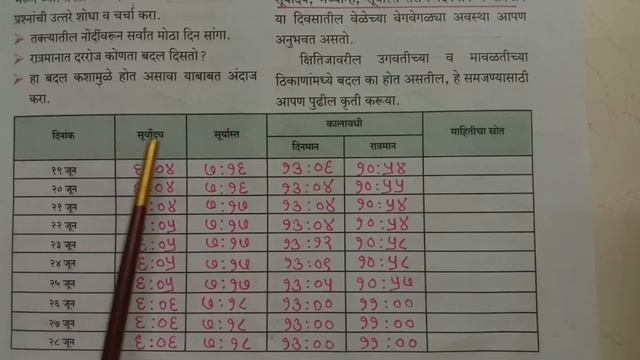 प्रश्नांची उत्तरे शोधा व चर्चा करा.
➤ तक्त्यातील नोंदींवरून सर्वांत मोठा दिन सांगा.
➤ रात्रमानात दररोज कोणता बदल दिसतो?
➤ हा बदल कशामुळे होत असावा याबाबत अंदाज
करा.
या दिवसातील वेळेच्या वेगवेगळ्या अवस्था आपण
अनुभवत असतो.
क्षितिजावरील उगवतीच्या व मावळतीच्या
ठिकाणांमध्ये बदल का होत असतील, हे समजण्यासाठी
आपण पुढील कृती करूया.
दिनांक सूर्योदय सूर्यास्त कालावधी माहितीचा स्रोत
दिनमान रात्रमान
१९ जून ६:०४ ७:१६ १३:०६ १०:५४
२० जून ६:०४ ७:१६ १३:०४ १०:५५
२१ जून ६:०४ ७:१७ १३:०४ १०:५४
२२ जून ६:०५ ७:१७ १३:०४ १०:५४
२३ जून ६:०५ ७:१७ १३:१२ १०:५८
२४ जून ६:०५ ७:१७ १३:०९ १०:५८
२५ जून ६:०५ ७:१७ १३:०५ १०:५७
२६ जून ६:०६ ७:१८ १३:०० ११:००
२७ जून ६:०६ ७:१८ १३:०० ११:००
२८ जून ६:०६ ७:१८ १३:०० ११:००